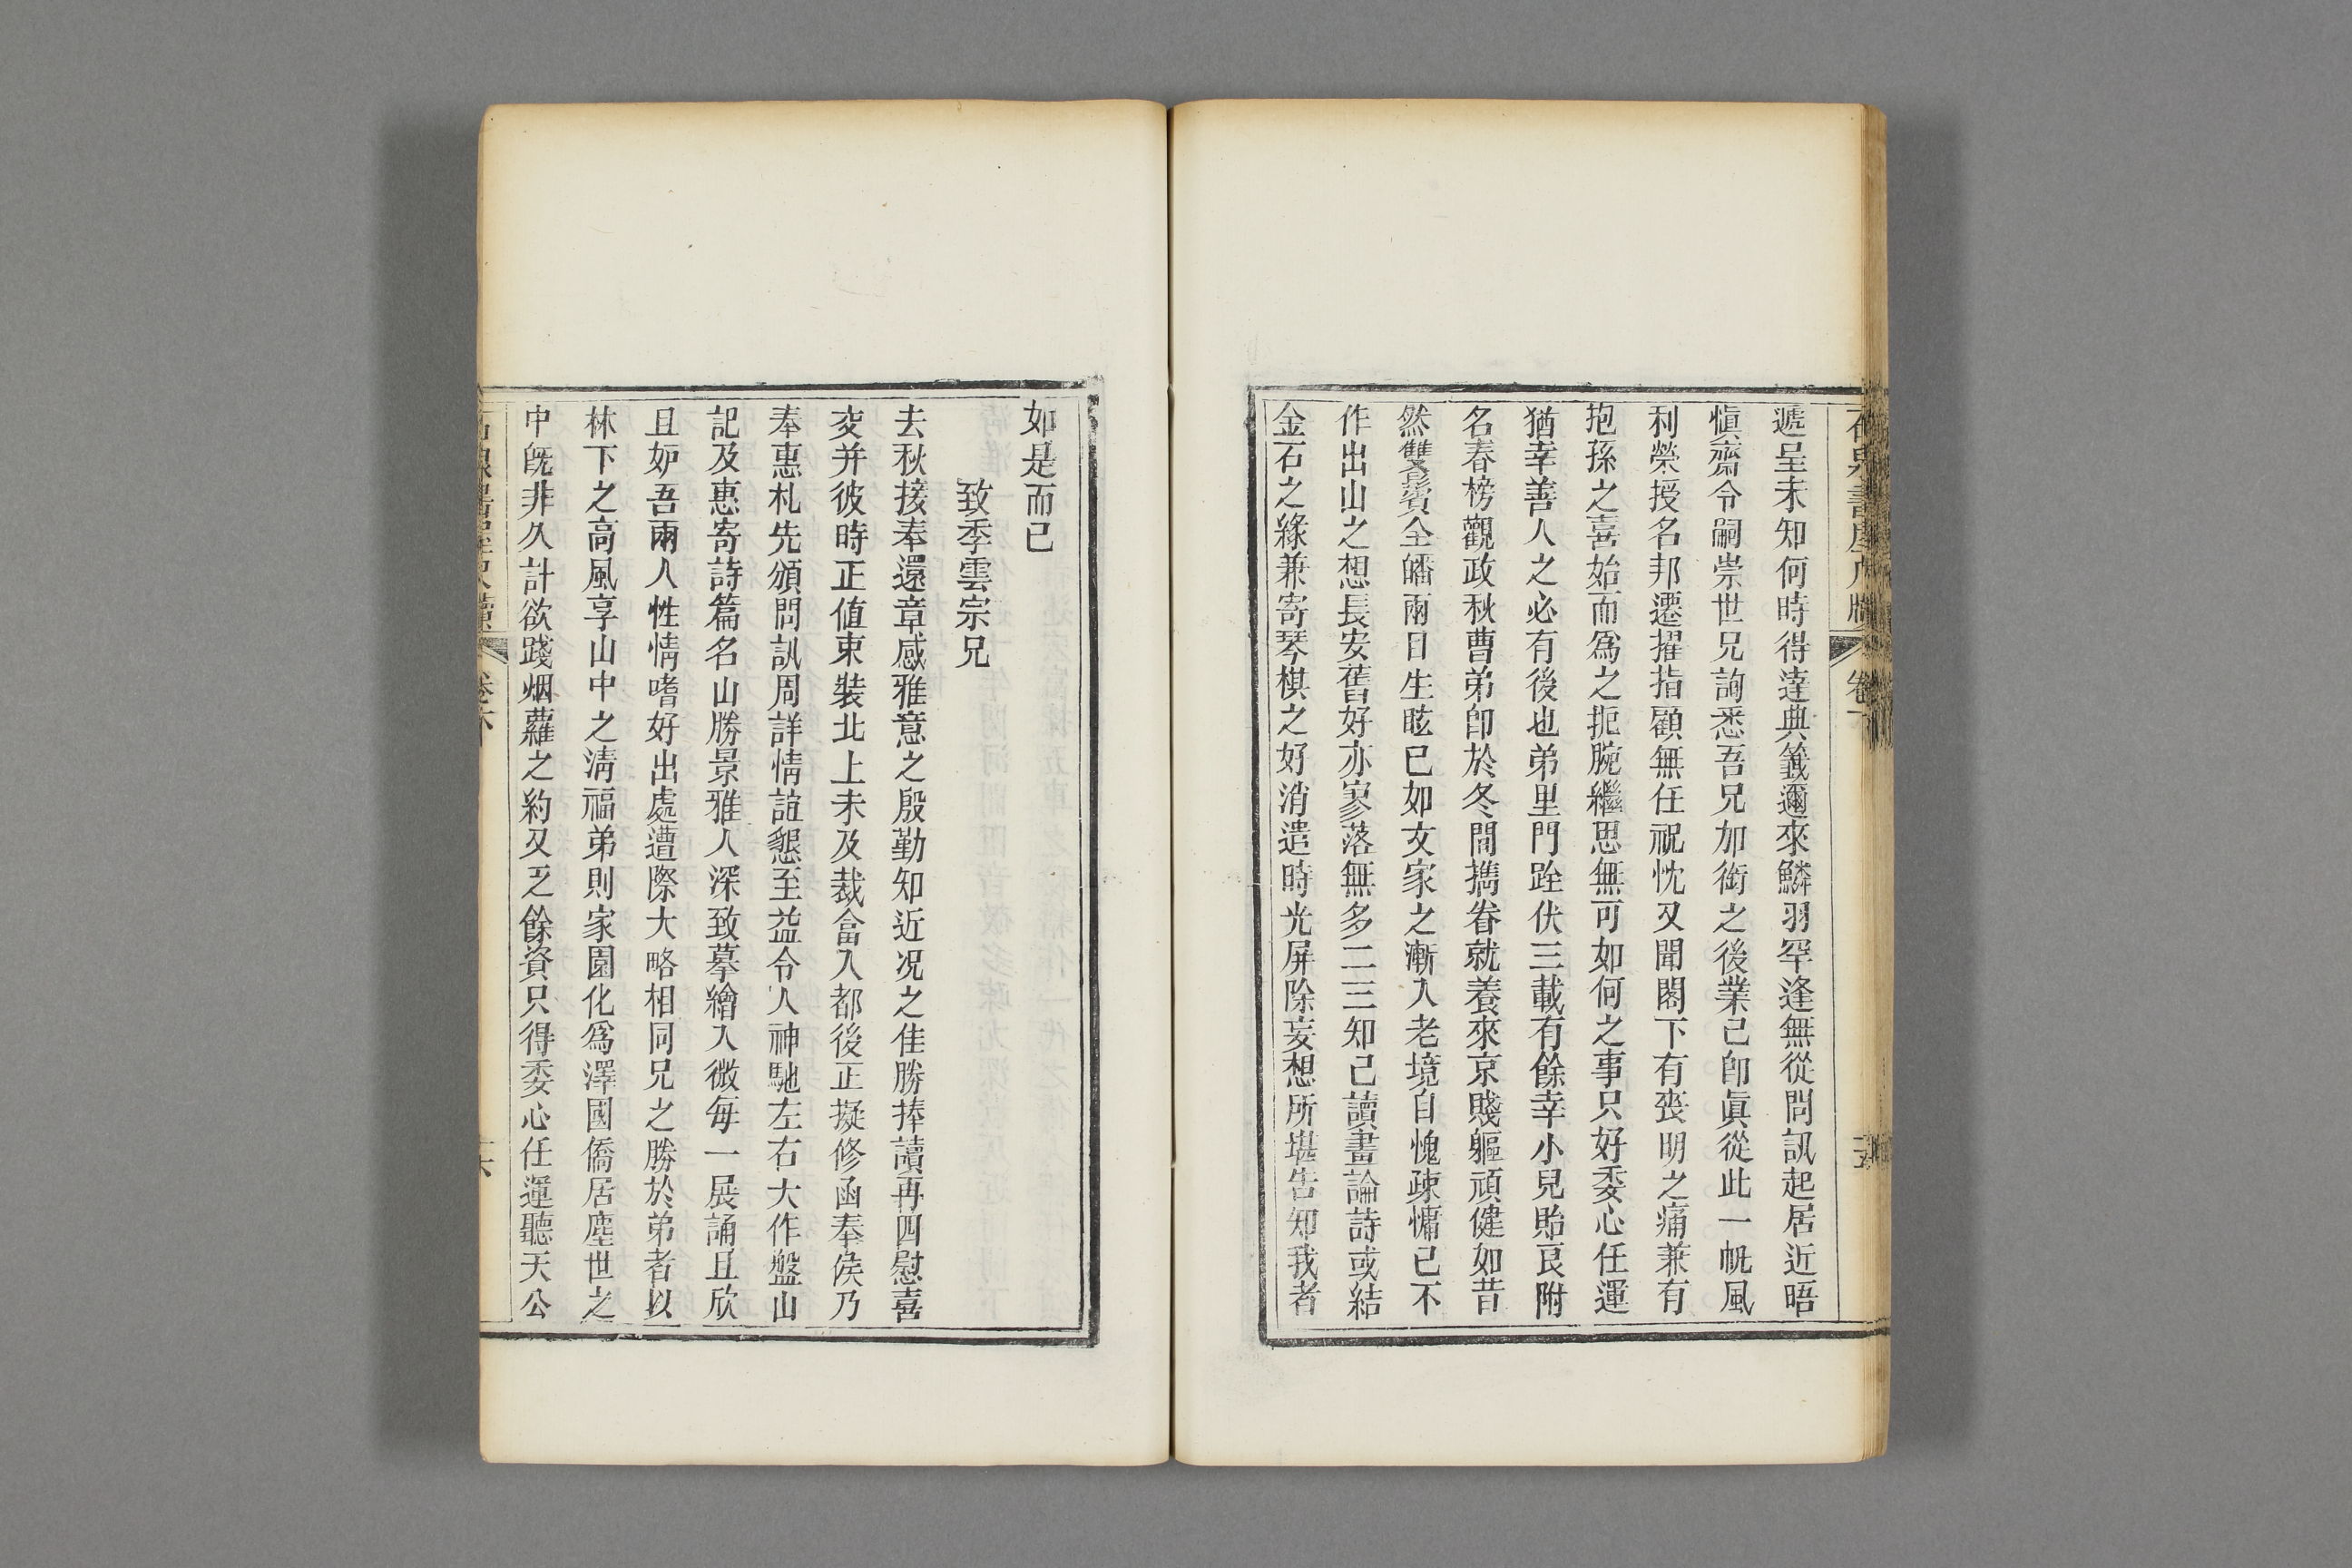 遞呈未知何時得達典籤邇來鱗羽罕逢無從問訊起居近晤
愼齋令嗣崇世兄詢悉吾兄加銜之後業已卽眞從此一帆風
利榮授名邦遷擢指顧無任祝忱又聞閣下有喪明之痛兼有
抱孫之喜始而爲之扼腕繼思無可如何之事只好委心任運
猶幸善人之必有後也弟里門跧伏三載有餘幸小兒貽良附
名春榜觀政秋曹弟卽於冬間攜眷就養來京賤軀頑健如昔
然雙鬢鬚全皤兩目生眩已如文家之漸入老境自愧疎慵已不
作出山之想長安舊好亦寥落無多二三知己讀畫論詩或結
金石之緣兼寄琴棋之好消遣時光屏除妄想所堪告知我者
如是而已
致季雲宗兄
去秋接奉還章感雅意之殷勤知近况之佳勝捧讀再四慰喜
交并彼時正值束裝北上未及裁畣入都後正擬修函奉候乃
奉惠札先頒問訊周詳情誼懇至益令人神馳左右大作盤山
記及惠寄詩篇名山勝景雅人深致摹繪入微每一展誦且欣
且妒吾兩人性情嗜好出處遭際大略相同兄之勝於弟者以
林下之高風享山中之淸福弟則家園化爲澤國僑居塵世之
中旣非久計欲踐烟蘿之約又乏餘資只得委心任運聽天公